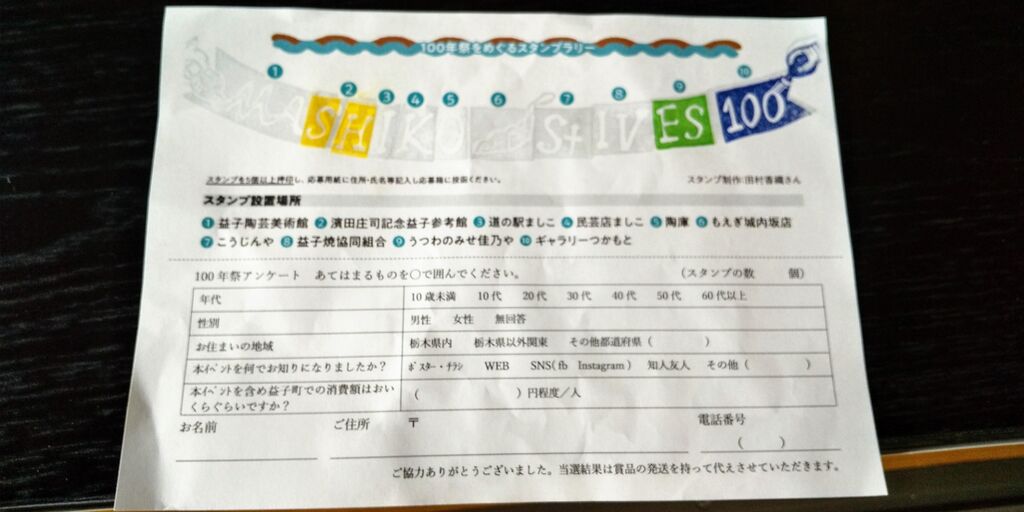 100年祭をめぐるスタンプラリー
1 2 3 4 5 6 7 8 9 10
MASHIKO StIVES 100
スタンプを5個以上押印し、応募用紙に住所・氏名等記入し応募箱に投函ください。
スタンプ制作:田村香織さん
スタンプ設置場所
1 益子陶芸美術館 2 濱田庄司記念益子参考館 3 道の駅ましこ 4 民芸店ましこ 5 陶庫 6 もえぎ城内坂店
7 こうじんや 8 益子焼協同組合 9 うつわのみせ佳乃や 10 ギャラリーつかもと
100年祭アンケート あてはまるものを○で囲んでください。 (スタンプの数 個)
年代 10歳未満 10代 20代 30代 40代 50代 60代以上
性別 男性 女性 無回答
お住まいの地域 栃木県内 栃木県以外関東 その他都道府県( )
本イベントを何でお知りになりましたか? ポスター・チラシ WEB SNS(fb Instagram) 知人友人 その他( )
本イベントを含め益子町での消費額はおい
くらぐらいですか?
( )円程度/人
お名前 ご住所 〒 電話番号
( )
ご協力ありがとうございました。当選結果は賞品の発送を持って代えさせていただきます。